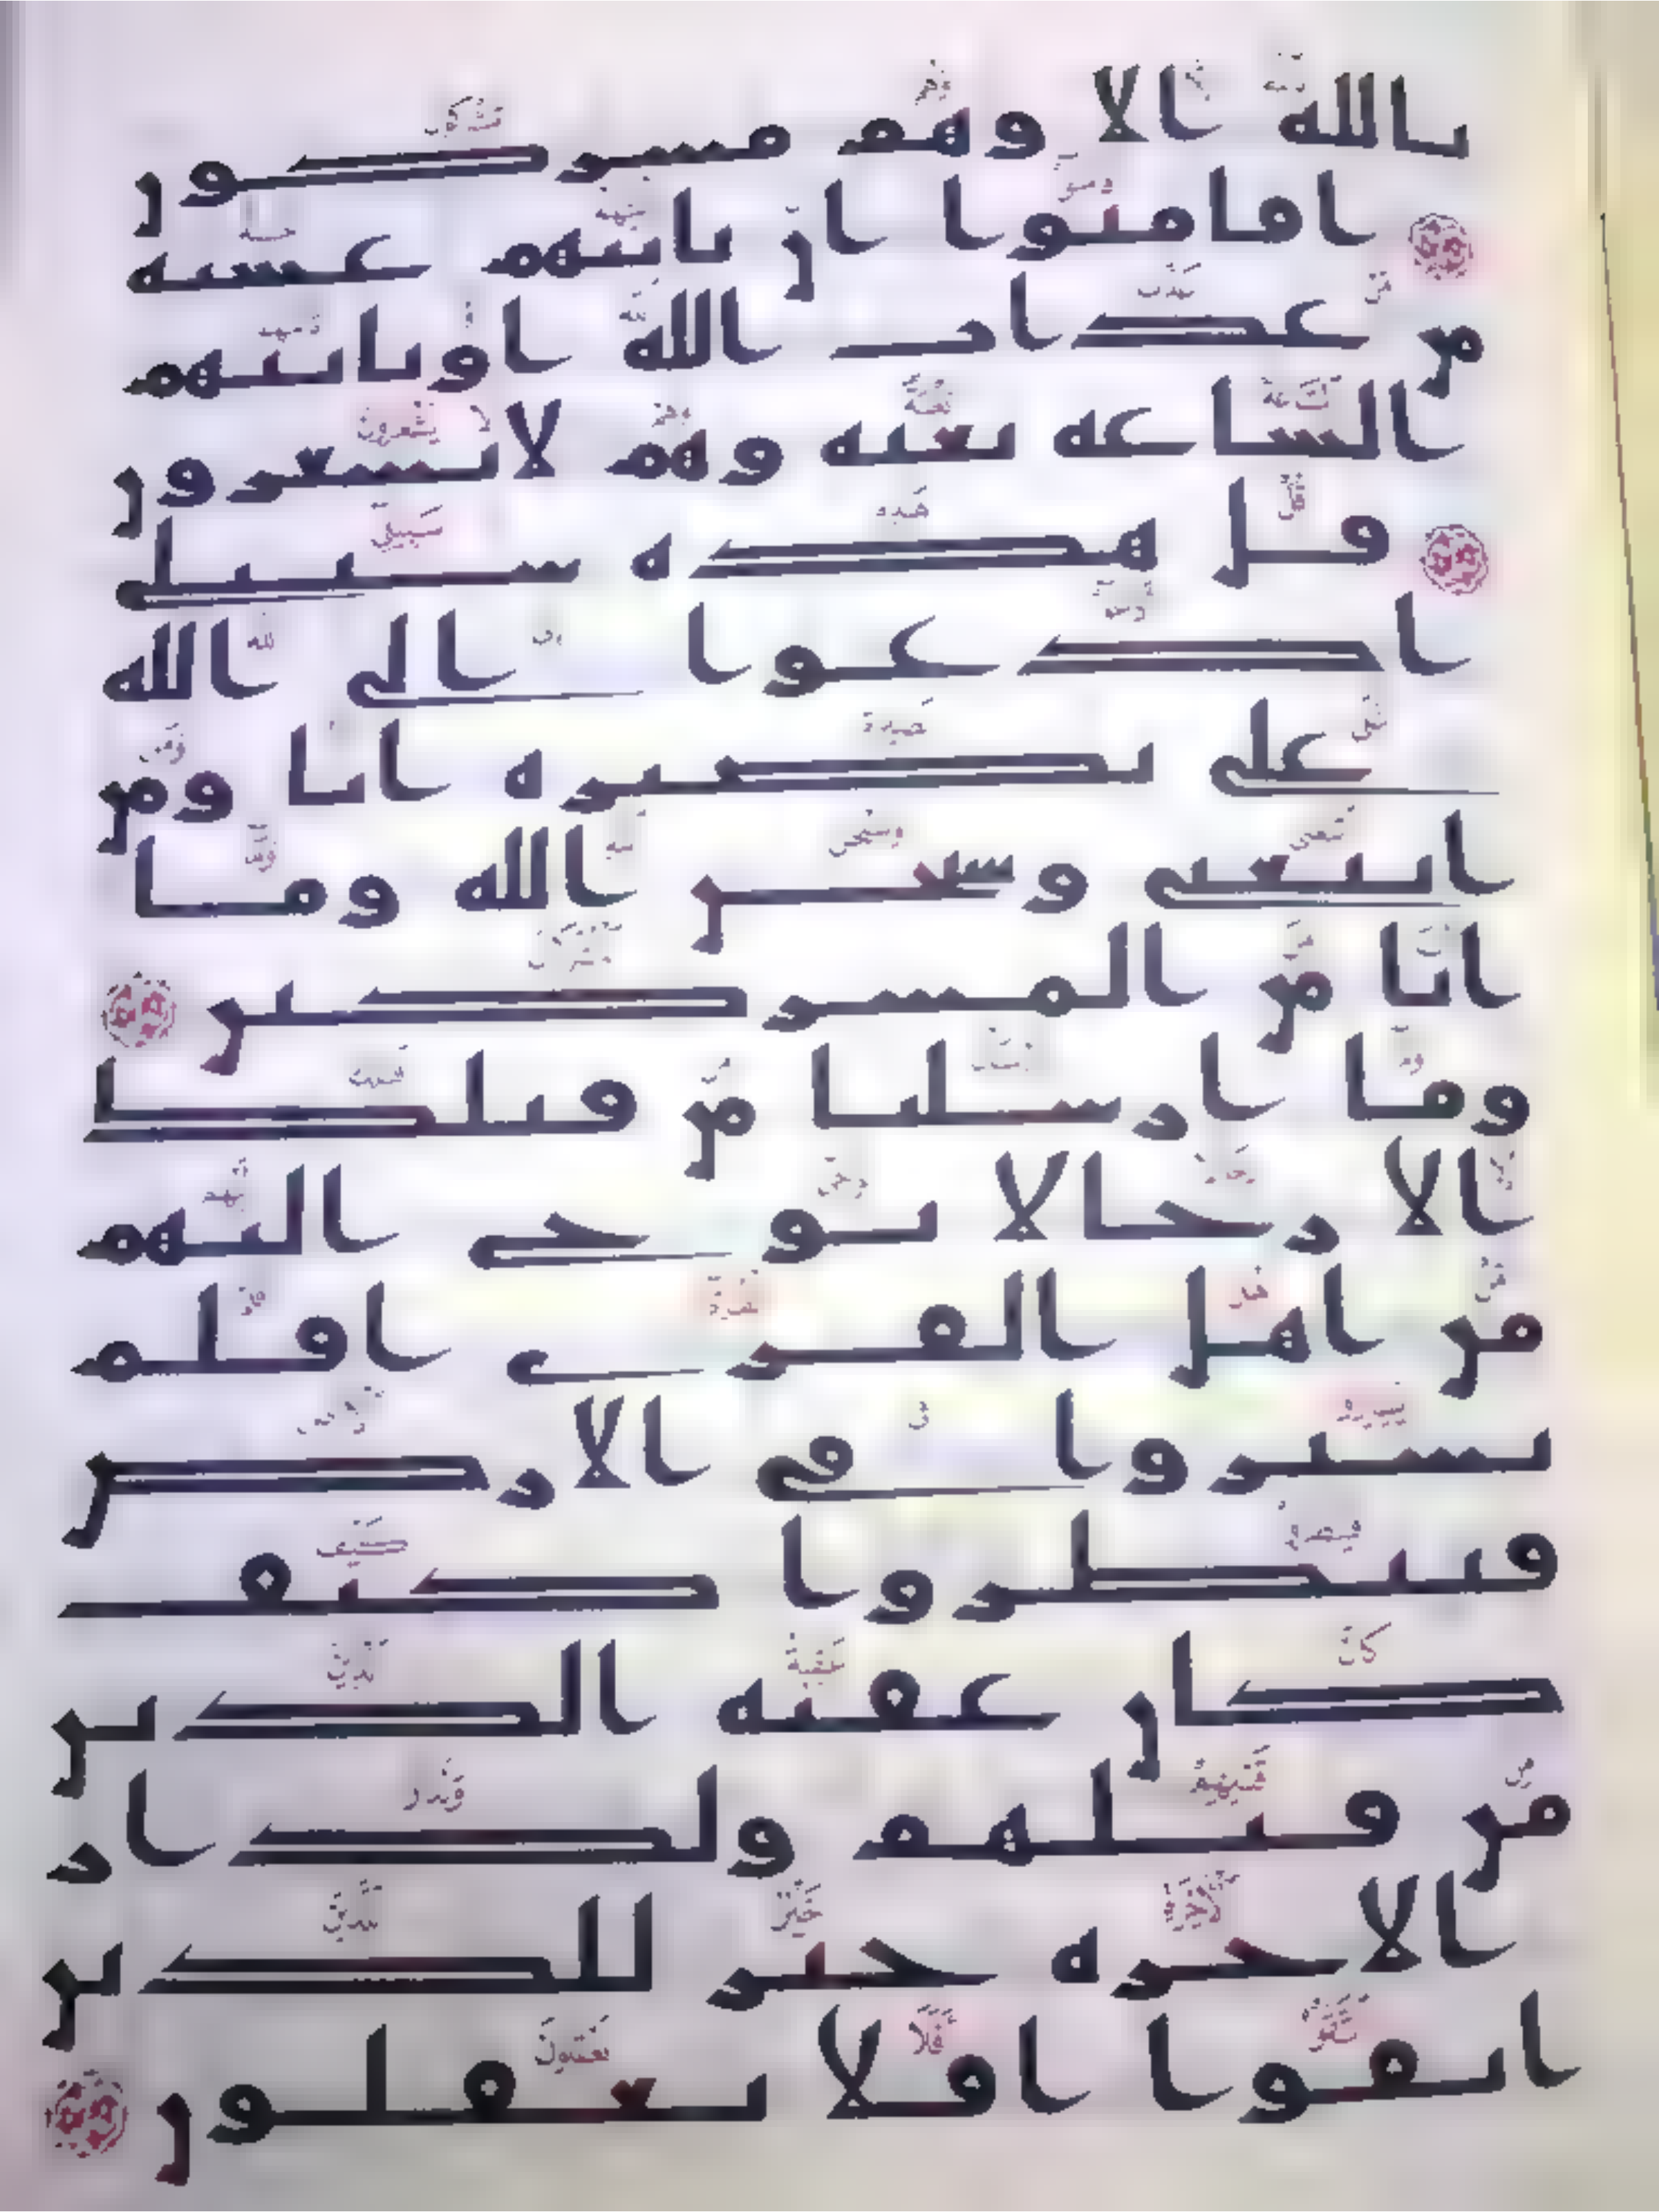 بالله الا وهم مشركون
افامنوا ان تاتيهم غشيه
من عذاب الله او تاتيهم
الساعه بغته وهم لا يشعرون
قل هذه سبيلي
ادعوا الى الله
على بصيره انا ومن
اتبعني وسبحن الله وما
انا من المشركين
وما ارسلنا من قبلك
الا رجالا نوحي اليهم
من اهل القرى افلم
يسيروا في الارض
فينظروا كيف
كان عقبه الذين
من قبلهم ولدار
الاخره خير للذين
اتقوا افلا تعقلون